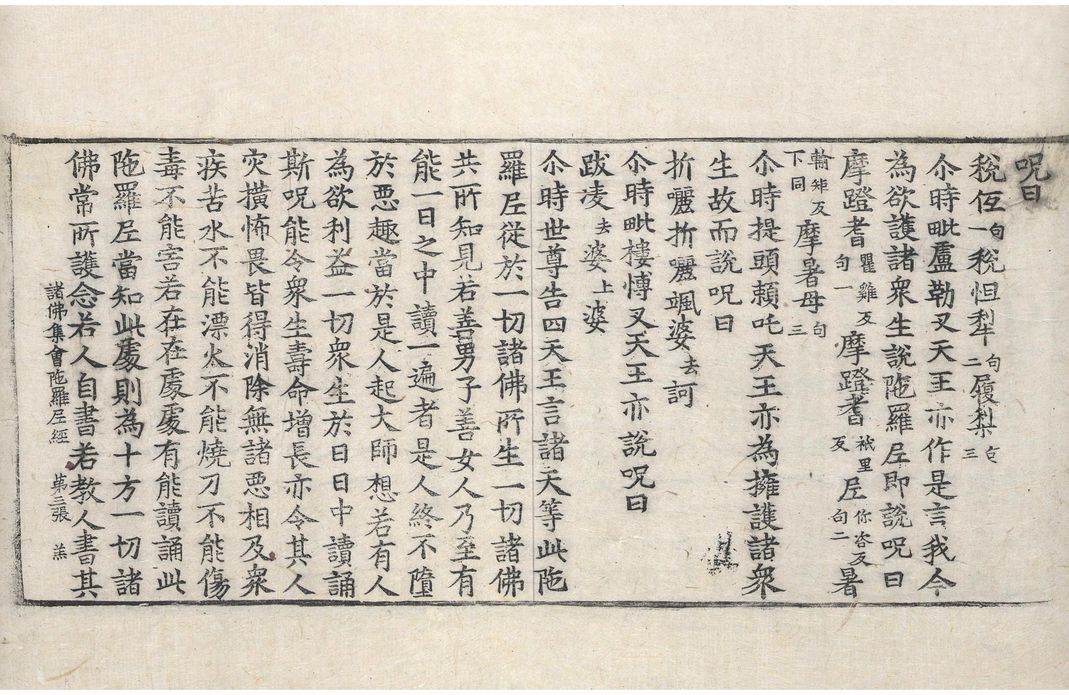 呪曰
稅㐌一句稅怛犁二句履梨三句
尒時毗盧勒叉天王亦作是言我今
為欲護諸衆生說陁羅尼即說呪曰
摩蹬耆瞿雞反句一摩蹬耆衹里反尼你咨反句二暑
輸矩反下同摩暑母句三
尒時提頭頼吒天王亦為擁護諸衆
生故而說呪曰
折囇折囇颯婆去訶
尒時毗樓愽叉天王亦說呪曰
跋凌去婆上婆
尒時世尊告四天王言諸天等此陁
羅尼從於一切諸佛所生一切諸佛
共所知見若善男子善女人乃至有
能一日之中讀一遍者是人終不墮
於悪趣當於是人起大師想若有人
為欲利益一切衆生於日日中讀誦
斯呪能令衆生壽命增長亦令其人
灾橫怖畏皆得消除無諸悪相及衆
疾苦水不能漂火不能燒刀不能傷
毒不能害若在在處處有能讀誦此
陁羅尼當知此處則為十方一切諸
佛常所護念若人自書若教人書其
諸佛集會陁羅尼經 第三張 羔